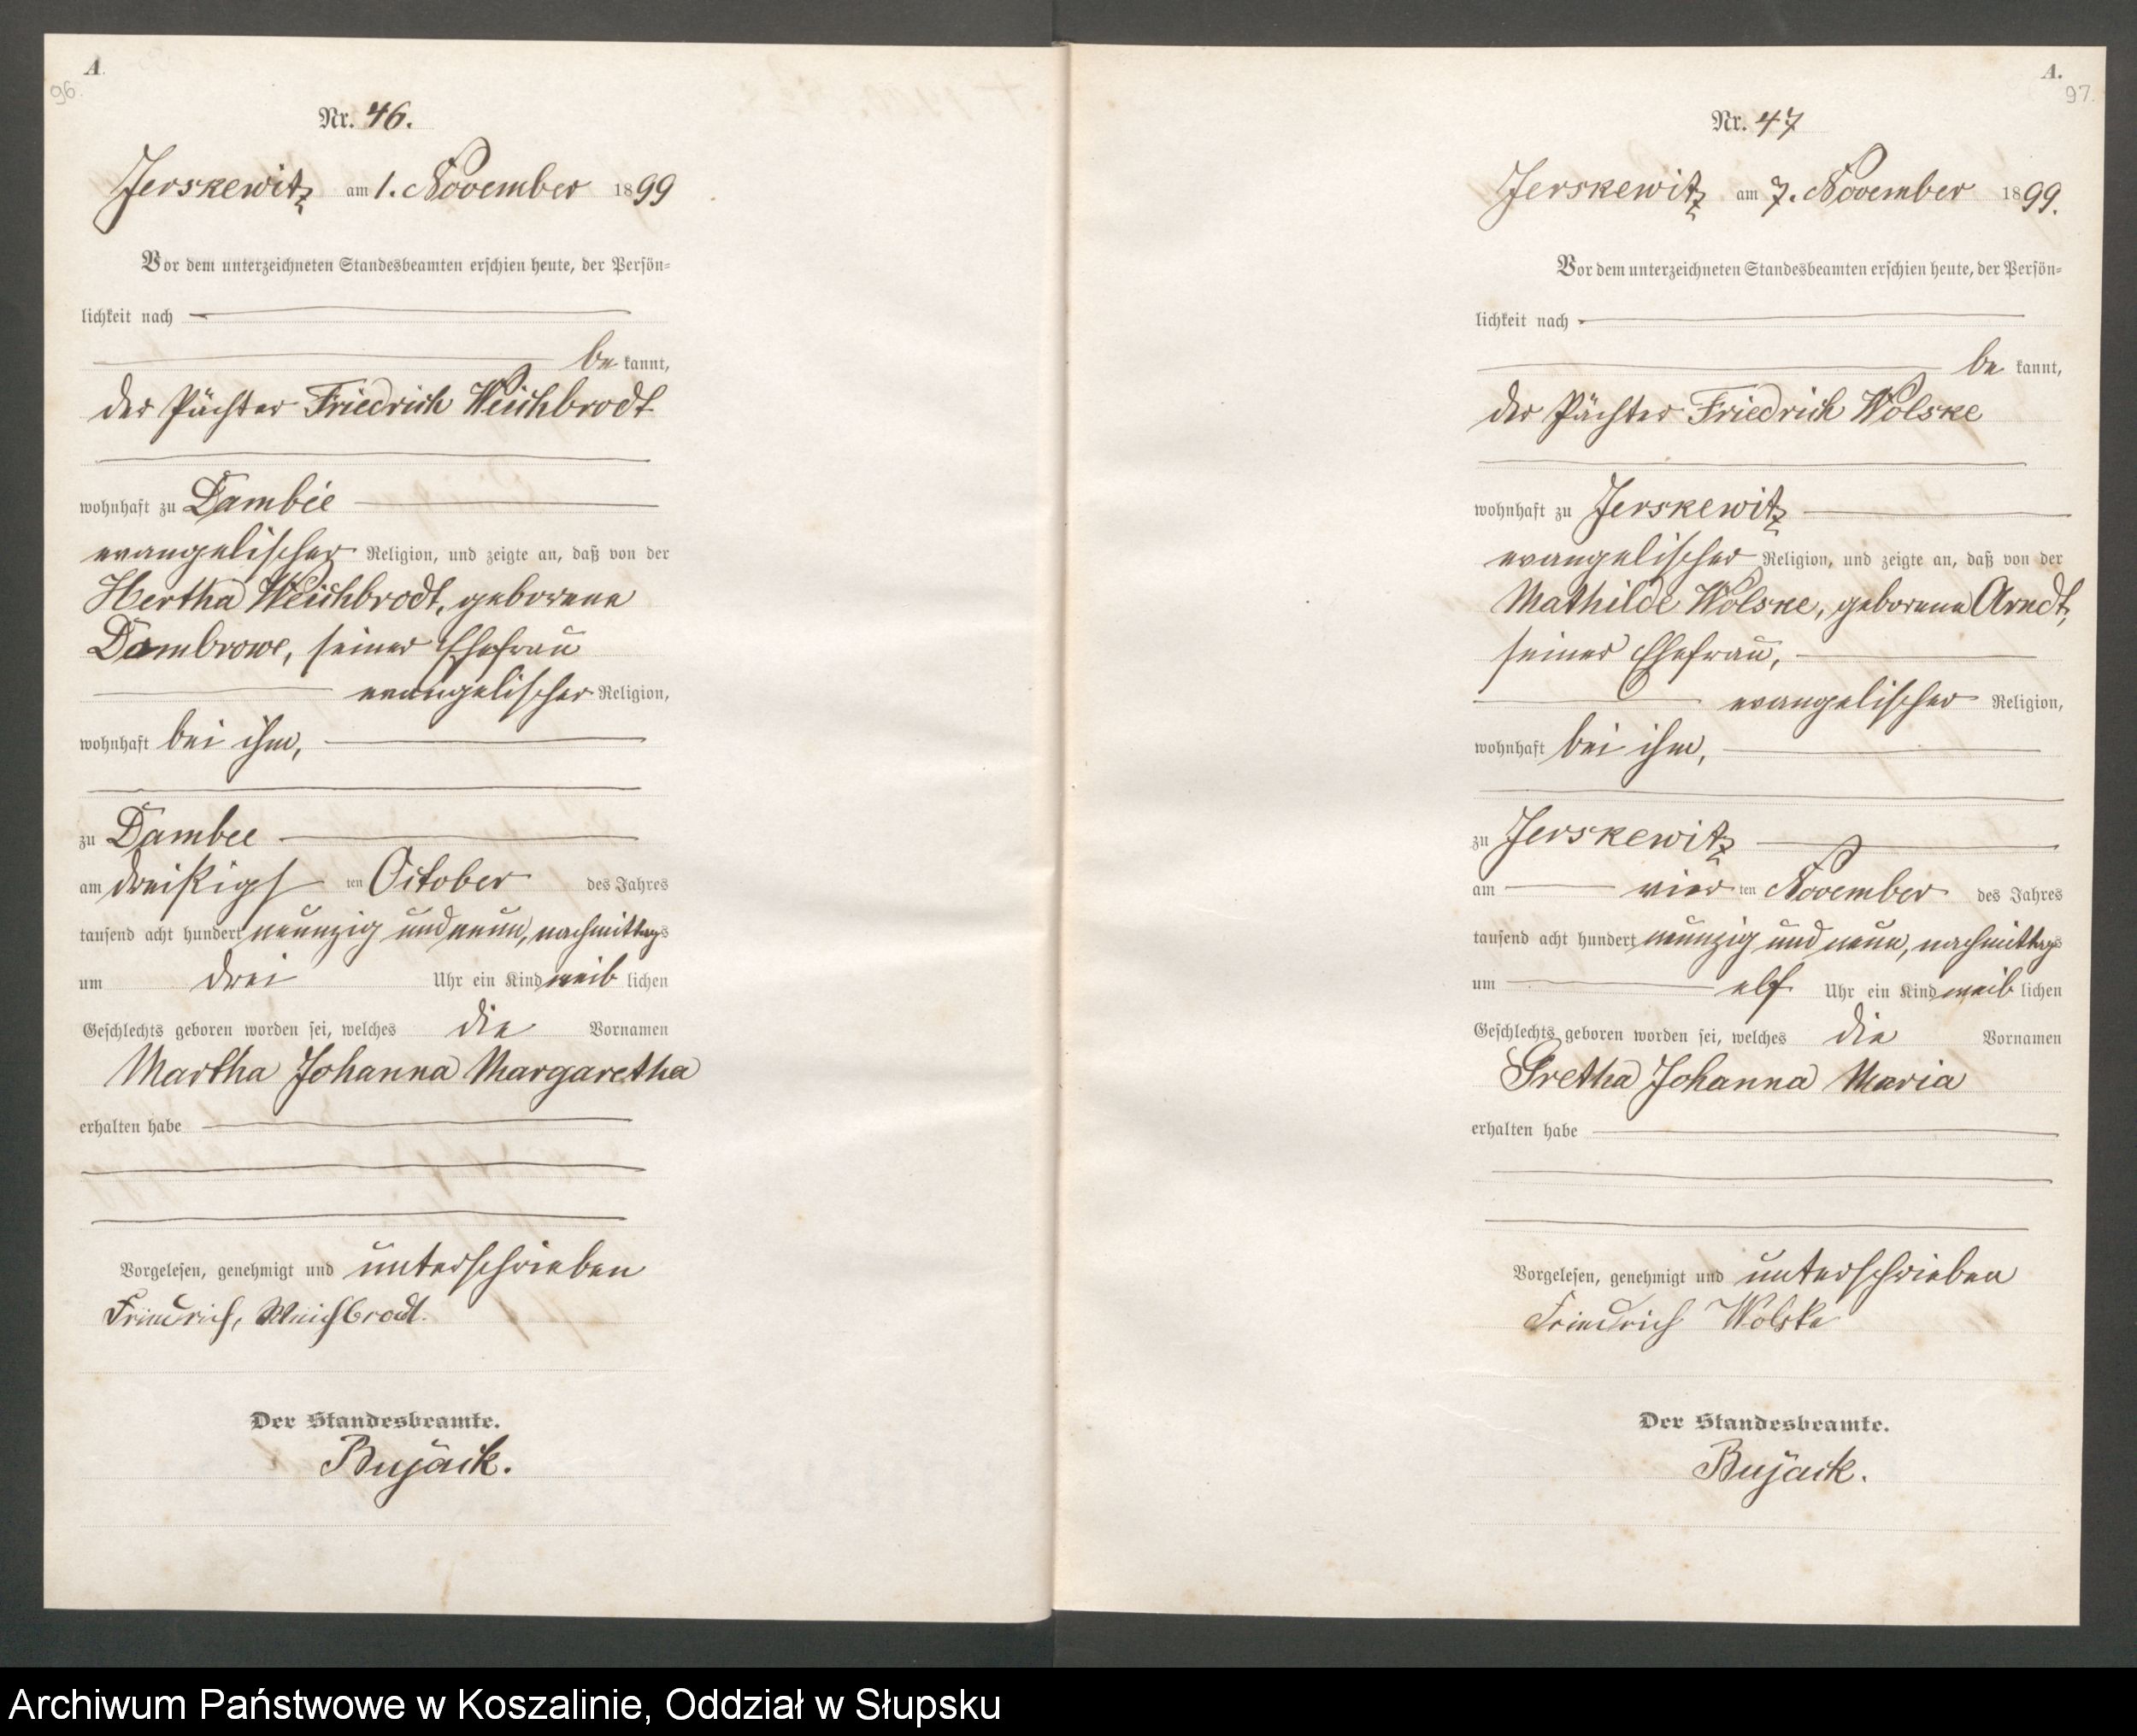 A.
96.
Nr. 46.
Jerskewitz am 1. November 1899
Vor dem unterzeichneten Standesbeamten erschien heute, der Persön-
lichkeit nach
be kannt,
der Pächter Friedrich Weichbrodt
wohnhaft zu Dambee
evangelischer Religion, und zeigte an, daß von der
Hertha Weichbrodt, geborene
Dambrowe, seiner Ehefrau
evangelischer Religion,
wohnhaft bei ihm,
zu Dambee
am dreißigs ten October des Jahres
tausend acht hundert neunzig und neun, nachmittags
um drei Uhr ein Kind weib lichen
Geschlechts geboren worden sei, welches die Vornamen
Martha Johanna Margaretha
erhalten habe
Vorgelesen, genehmigt und unterschrieben
Friedrich, Weichbrodt.
Der Standesbeamte.
Bujack.
A.
97.
Nr. 47
Jerskewitz am 7. November 1899.
Vor dem unterzeichneten Standesbeamten erschien heute, der Persön-
lichkeit nach
be kannt,
der Pächter Friedrich Wolske
wohnhaft zu Jerskewitz
evangelischer Religion, und zeigte an, daß von der
Mathilde Wolske, geborene Arndt,
seiner Ehefrau,
evangelischer Religion,
wohnhaft bei ihm,
zu Jerskewitz
am vier ten November des Jahres
tausend acht hundert neunzig und neun, nachmittags
um elf Uhr ein Kind weib lichen
Geschlechts geboren worden sei, welches die Vornamen
Gretha Johanna Maria
erhalten habe
Vorgelesen, genehmigt und unterschrieben
Friedrich Wolske
Der Standesbeamte.
Bujack.
Archiwum Państwowe w Koszalinie, Oddział w Słupsku